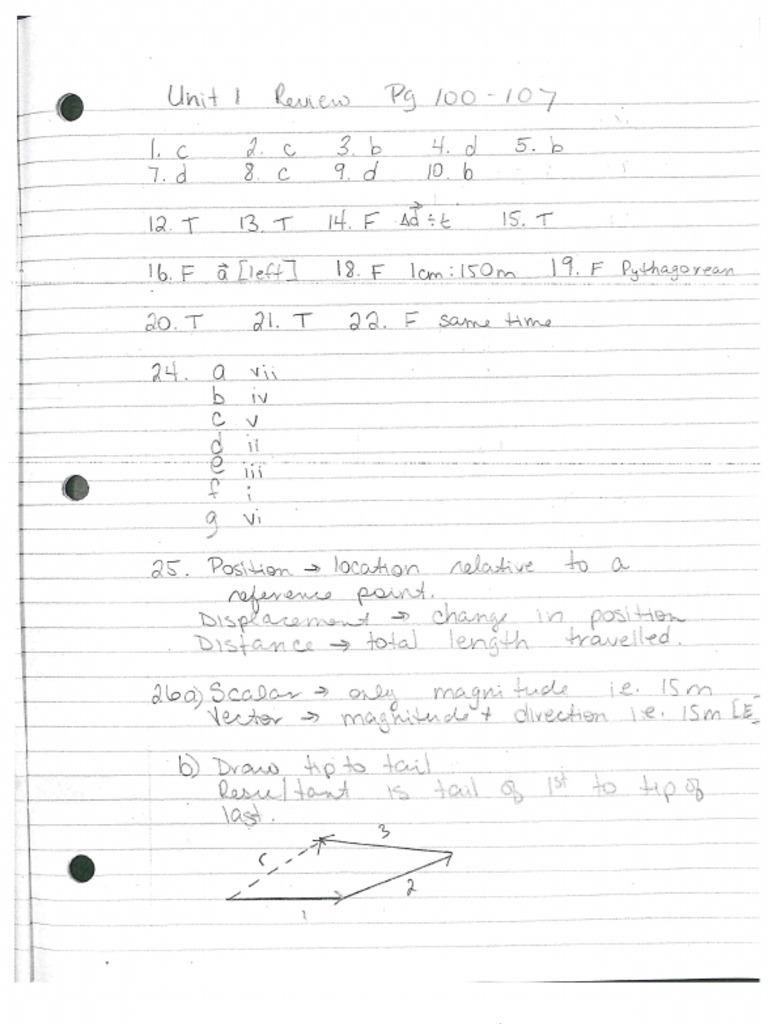 Unit 1 Review Pg 100-107
1. c 2. c 3. b 4. d 5. b
7. d 8. c 9. d 10. b
12. T 13. T 14. F Δd⃗ ÷ t 15. T
16. F a⃗ [left] 18. F 1cm:150m 19. F Pythagorean
20. T 21. T 22. F same time
24. a vii
b iv
c v
d ii
e iii
f i
g vi
25. Position → location relative to a
reference point.
Displacement → change in position
Distance → total length travelled.
26a) Scalar → only magnitude i.e. 15m
Vector → magnitude + direction i.e. 15m [E]
b) Draw tip to tail
Resultant is tail of 1st to tip of
last.
3
r
2
1